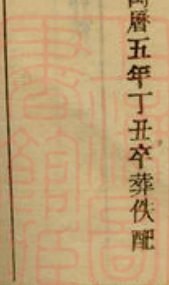 萬曆五年丁丑卒葬佚配